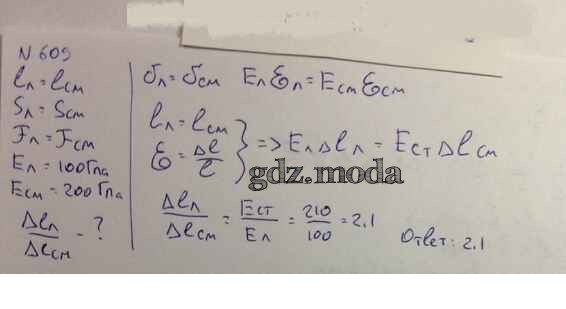 N 609
lл = lсм
Sл = Sсм
Fл = Fсм
Eл = 100 Гпа
Eсм = 200 Гпа
Δlл/Δlсм - ?
σл = σсм Eл Ɛл = Eсм Ɛсм
lл = lсм
Ɛ = Δl/l } => Eл Δlл = Eст Δlсм
gdz.moda
Δlл/Δlсм = Eст/Eл = 210/100 = 2,1
Ответ: 2,1